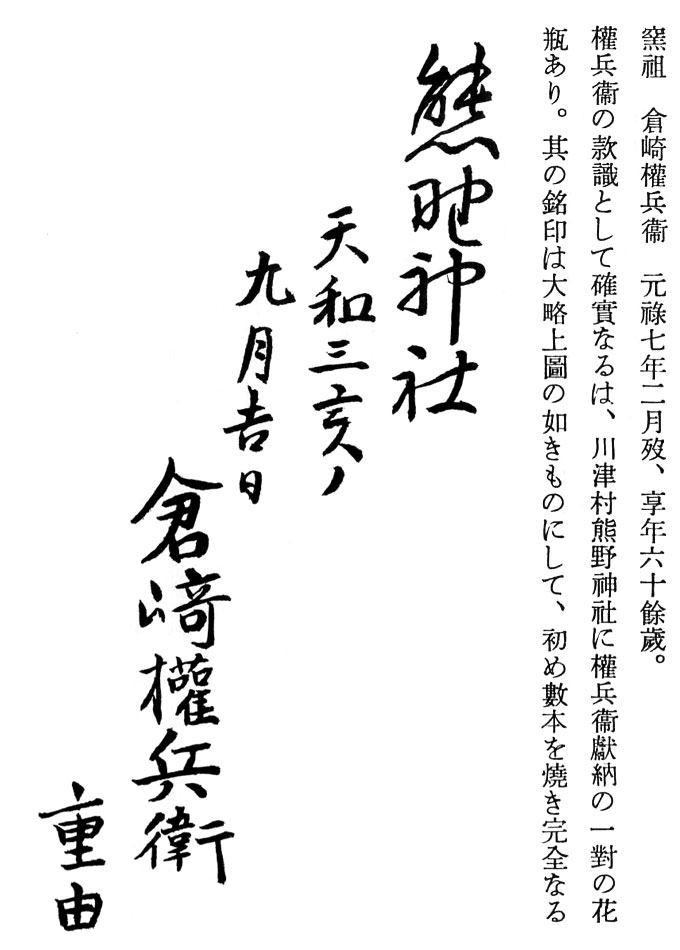 窯祖　倉崎權兵衞　元祿七年二月歿、享年六十餘歲。
權兵衞の款識として確實なるは、川津村熊野神社に權兵衞獻納の一對の花
瓶あり。其の銘印は大略上圖の如きものにして、初め數本を燒き完全なる
熊野神社
天和三亥ノ
九月吉日
倉﨑權兵衛
重由